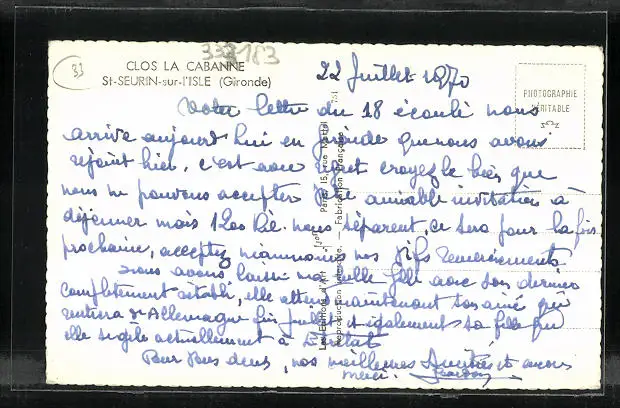 33
333183
CLOS LA CABANNE
St-SEURIN-sur-l'ISLE (Gironde)
22 Juillet 1970
PHOTOGRAPHIE
VÉRITABLE
Votre lettre du 18 écoulé nous
arrive aujourd'hui en Gironde que nous avons
rejoint hier, c'est avec croyez le bien que
nous ne pouvons accepter amiable invitation à
déjeuner mais 1200 nous séparent, ce sera pour la fois
prochaine, acceptez néanmoins nos vifs remerciements
nous avons laissé belle fille avec son dernier
complètement rétabli, elle attend maintenant son ainé qui
rentrera d'Allemagne fin et également sa fille qui
elle actuellement à
Pour Vous deux, nos meilleures Amitiés et encore
merci.
Fabrication Française